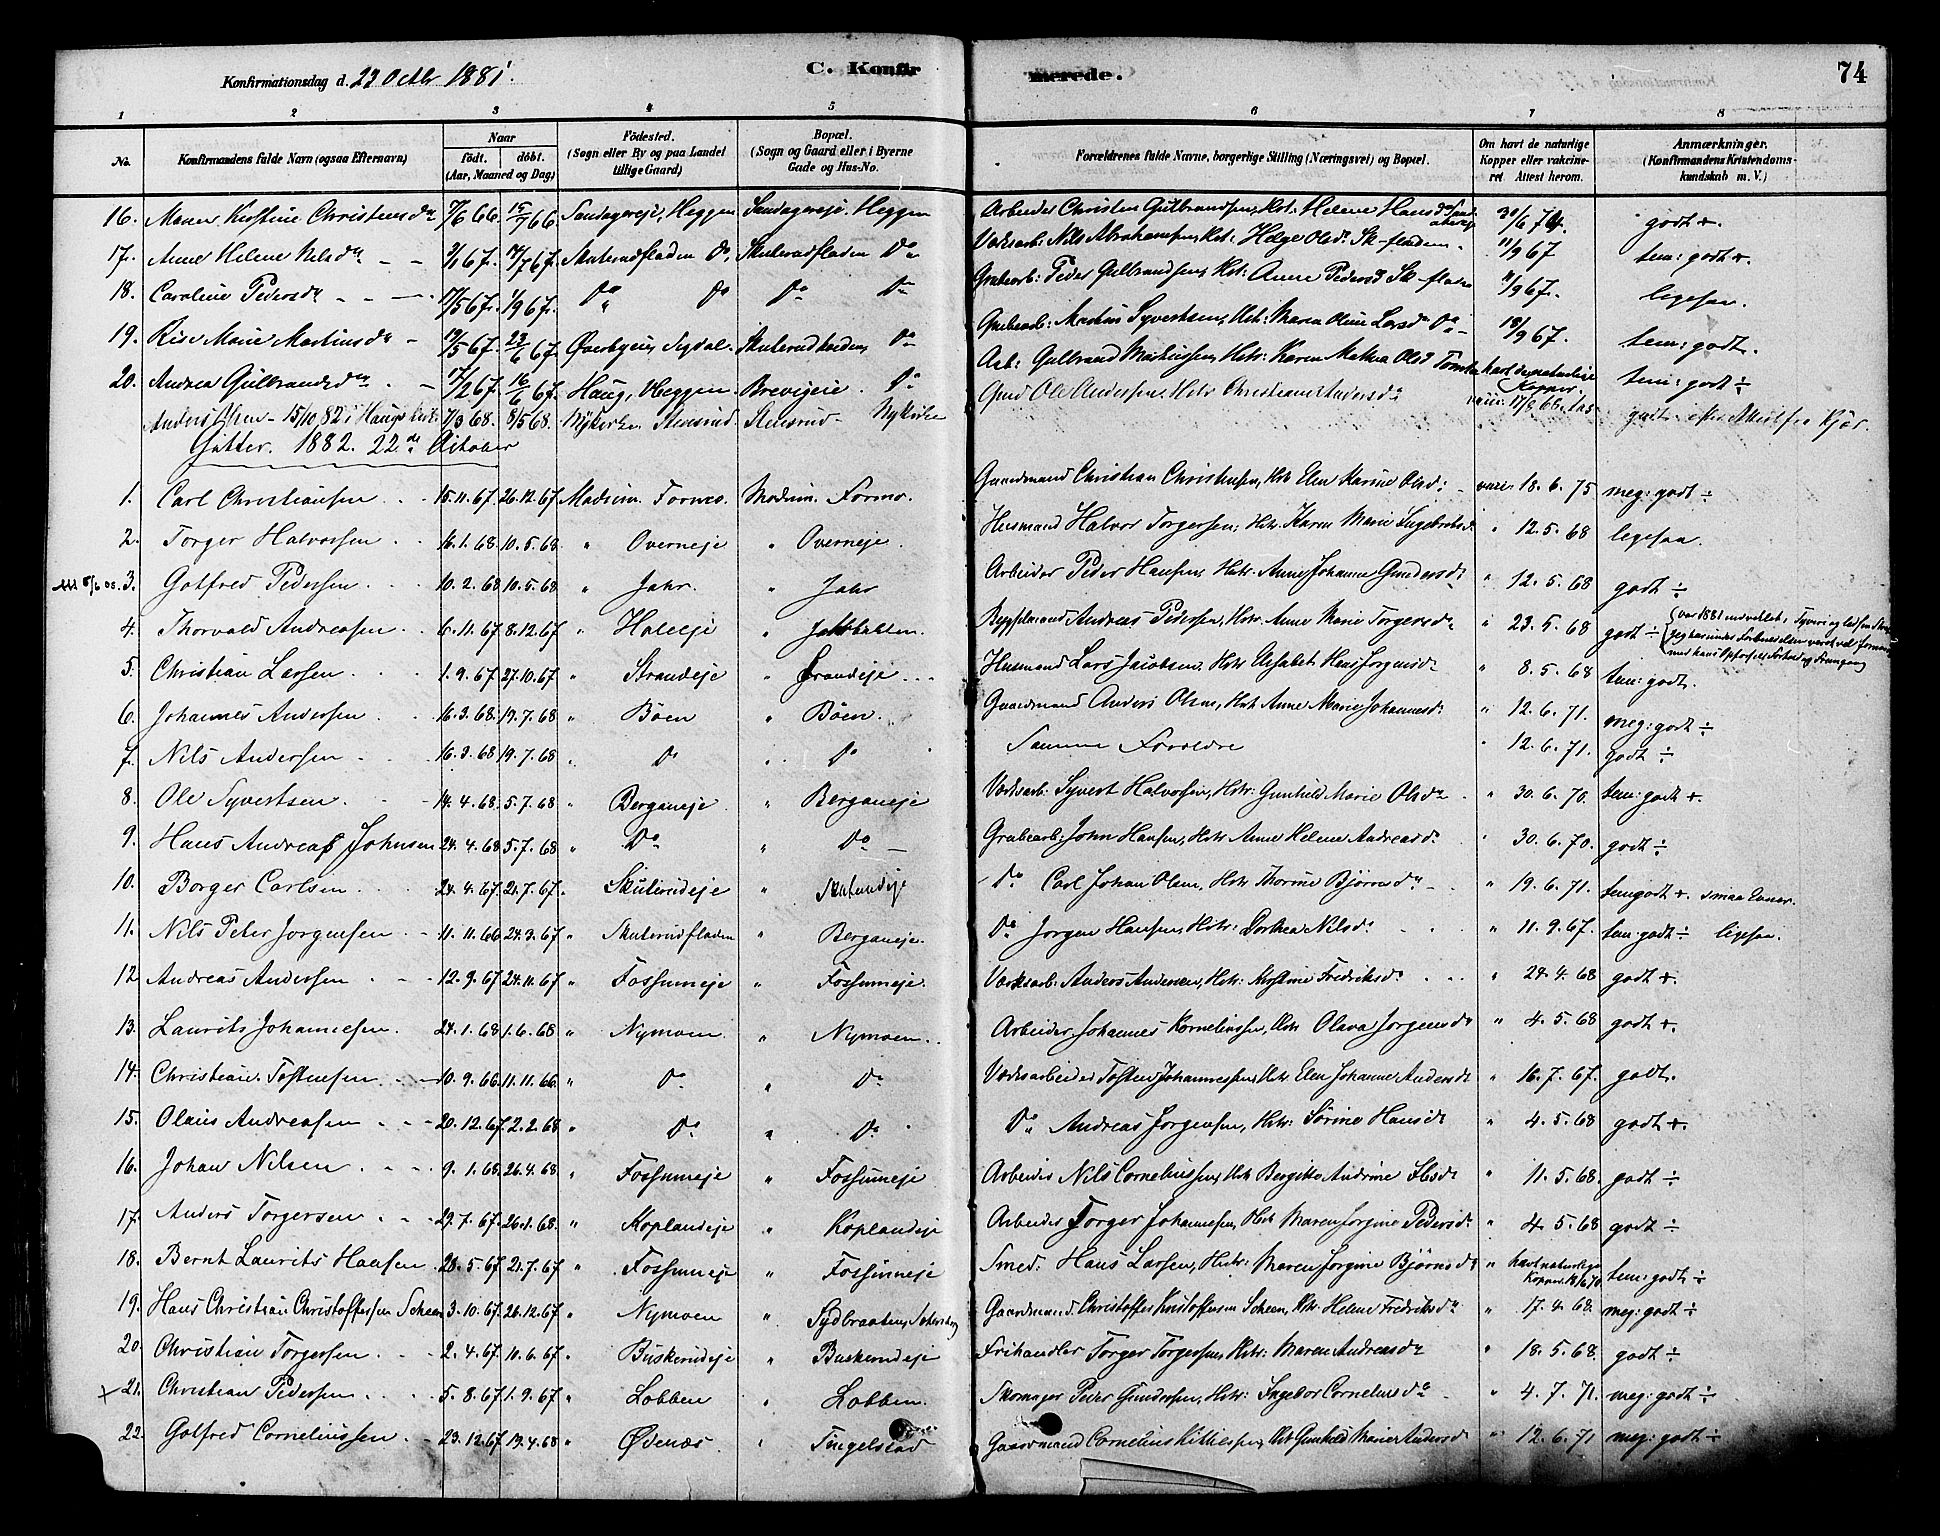 Konfirmationsdag d. 23 Octbr 1881.
C. Konfirmerede.
74
1 2 3 4 5 6 7 8
No. Konfirmandens fulde Navn (ogsaa Efternavn) Naar født. døbt. (Aar, Maaned og Dag) Fødested. (Sogn eller By og paa Landet tillige Gaard) Bopæl. (Sogn og Gaard eller i Byerne Gade og Hus-No. Forældrenes fulde Navne, borgerlige Stilling (Næringsvei) og Bopæl. Om havt de naturlige Kopper eller vakcineret Attest herom. Anmærkninger. (Konfirmandens Kristendomskundskab m. V.)
16. Maren Kirstine Christensdr 7/6 66 15/7 66 Sandagereje, Heggen Sandagereje. Heggen Arbeider Christen Gulbrandsen, Hst: Helene Hansdr 30/6 74. godt +.
17. Anne Helene Nilsdr 2/1 67. 14/7 67. Skuterudfladen Do Skuterudfladen Do Værksarb: Nils Abrahamsen, Hst: Helge Olsdr Sk-fladen 11/9 67 tem: godt +.
18. Caroline Pedersdr 17/5 67. 1/9 67. Do Do Do Do Grubearb: Peder Gulbrandsen, Hst: Anne Pedersd Sk-fladen 11/9 67. ligesaa.
19. Marie Martinsdr 19/5 67. 23/6 67. Øverbyeie, Sigdal. Skuterudfladen Do Grubearb: Martin Syvertsen, Hst: Maren Oline Larsdr Do 18/9 67. tem: godt.
20. Andrea Gulbrandsdr 17/2 67. 16/6 67. Haug, Heggen Brevigeie Do Arb: Gulbrand Martinsen, Hstr: Karen Mathea Olsd havt de naturlige Kopper. tem: godt ÷
Anders Olsen 15/10 82 i Haugs Kirke 7/3 68. 8/5 68. Nykirke Stensrud Stensrud Nykirke Gmd Ole Andersen, Hstr Christiane Andersdr 17/8 68. godt. efter Attest fra
Gutter. 1882. 22de October
1. Carl Christiansen 15.11.67. 26.12.67. Modum. Formo. Modum. Formo. Gaardmand Christian Christensen, Hst Elen Karine Olsdr vacc. 18.6.75 meg: godt ÷
2. Torger Halvorsen 16.1.68. 10.5.68 " Overneje " Overneje. Husmand Halvor Torgersen, Hstr. Karen Marie Ingebretsdr " 12.5.68 ligesaa.
3. Gotfred Pedersen 10.2.68 10.5.68 " Jahr. " Jahr Arbeider Peder Hansen, Hstr. Anne Johanne Gundersdr " 12.5.68 godt ÷
4. Thorvald Andreasen 6.11.67. 8.12.67 " Holeeje " Andreas Pedersen, Hstr. Anne Marie Torgersdr " 23.5.68 godt ÷
5. Christian Larsen 1.9.67. 27.10.67 " Strandeje " Grandeje Husmand Lars Jacobsen. Hstr Elisabet Hans Jørgensdr " 8.5.68 tem: godt.
6. Johannes Andersen 16.3.68. 19.7.68 " Böen " Böen. Gaardmand Anders Olsen, Hst Anne Marie Johannesdr " 12.6.71. meg: godt ÷
7. Nils Andersen 16.3.68 19.7.68 " Do " Do Samme Forældre " 12.6.71. godt ÷
8. Ole Syvertsen 14.4.68. 5.7.68 " Berganeje " Berganeje Værksarb: Syvert Halvorsen, Hstr: Gunhild Marie Olsdr " 30.6.70. tem: godt +.
9. Hans Andreas Johnsen 24.4.68 5.7.68 " Do " Do Grubearb: John Hansen, Hstr Anne Helene Andreasdr " 30.6.70. godt ÷
10. Borger Carlsen 24.4.67. 21.7.67. " Skuterudeje " Skuterudeje Do Carl Johan Olsen, Hstr Thorine Bjørnsdr " 19.6.71. tem godt +. smaa Evner.
11. Nils Peter Jorgensen 11.11.66 24.3.67. " Skuterudfladen " Berganeje. Do Jorgen Hansen, Hstr: Dorthea Nilsdr " 11.9.67. tem: godt ÷ ligesaa.
12 Andreas Andersen 12.9.67 24.11.67. " Fossumeje " Fossumeje. Værksarb: Anders Andersen, Hstr: Kirstine Fredriksdr " 24.4.68 godt +.
13. Laurits Johannesen. 24.1.68 1.6.68 " Nymoen. " Nymoen. Arbeider Johannes Kornelinsen, Hstr Olava Jorgensdr " 4.5.68 godt +.
14. Christian Tostensen 10.9.66. 11.11.66. " Do " Do Værksarbeider Tosten Johannessen, Hstr Elen Johanne Andersdr " 16.7.67. godt.
15. Olaus Andreasen 20.12.67. 2.2.68 " Do " Do Do Andreas Jorgensen, Hstr: Sörine Hansdr " 4.5.68 godt +.
16. Johan Nilsen 9.1.68. 26.4.68 " Fossumeje " Fossumeje Arbeider Nils Corneliussen, Hstr Bergitte Andrine Ilsdr " 11.5.68 godt ÷
17. Anders Torgersen 29.7.67. 26.1.68. " Koplandeje " Koplandeje Arbeider Torger Johannesen, Hst Maren Jorgine Pedersdr " 4.5.68 godt ÷
18. Bernt Laurits Hansen 28.5.67. 21.7.67 " Fossumeje " Fossumeje Smed. Hans Larsen, Hstr: Maren Jorgine Bjørnsdr " havt naturlige Kopper tem: godt ÷
19. Hans Christian Christoffersen Scheen 3.10.67. 26.12.67 " Nymoen " Sydbraaten, Gaardmand. Christoffer Kristoffersen Scheen, Hstr Helene Fredriksdr " 17.4.68. meg: godt ÷
20. Christian Torgersen 2.4.67. 10.6.67. " Buskerudeje " Buskerudeje Frihandler Torger Torgersen, Hstr: Maren Andreasdr " 18.5.68. godt ÷
x 21. Christian Pedersen 5.8.67. 1.9.67 " Lobben " Lobben. Skomager Peder Gundersen, Hstr: Ingebor Corneliusdr " 4.7.71. meg: godt ÷
22. Gotfred Corneliussen 23.12.67 19.4.68 " Ødenæs. " Tingelstad Gaardmand Cornelius Kittelsen, Hst Gunhild Marie Andersdr " 12.6.71 meg: godt ÷